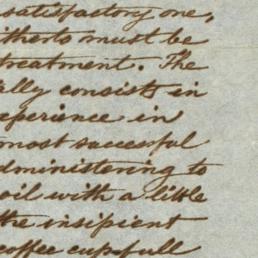 satisfactory one,
itherto must be
treatment. The
ally consists in
xperience in
most successful
dministering to
oil with a little
the insipient
coffee cupfull